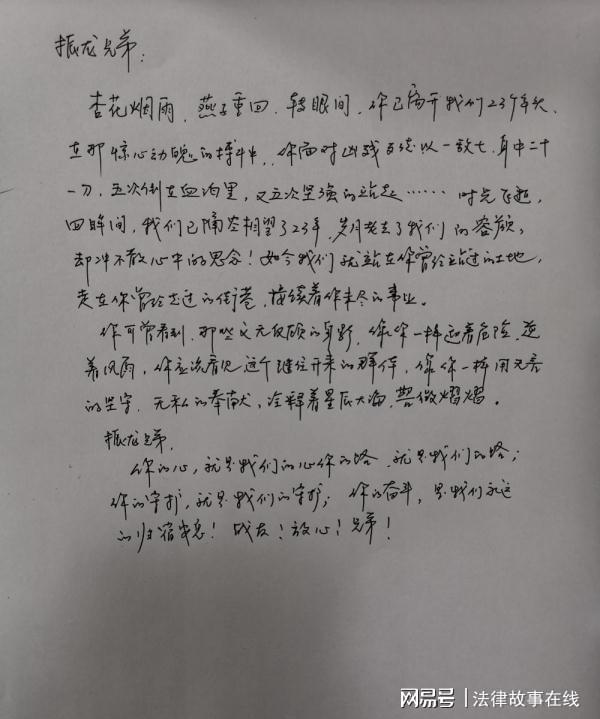 振龙兄弟:
杏花烟雨,燕子重回,转眼间,你已离开我们23个年头,
在那惊心动魄的搏斗中,你面对凶残歹徒以一敌七,身中二十
一刀,五次倒在血泊里,又五次坚强的站起……时光飞逝,
回眸间,我们已隔空相望了23年,岁月老去了我们的容颜,
却冲不散心中的思念!如今我们就站在你曾经站过的土地,
走在你曾经走过的街巷,接续着你未尽的事业。
你可曾看到,那些义无反顾的身影,像你一样迎着危险,逆
着风雨,你应该看见这个继往开来的群体,像你一样用无言
的坚守,无私的奉献,诠释着星辰大海,荧微熠熠。
振龙兄弟,
你的心,就是我们的心你的塔,就是我们的塔;
你的守护,就是我们的守护;你的奋斗,是我们永远
的归宿!战友!放心!兄弟!
网易号 | 法律故事在线